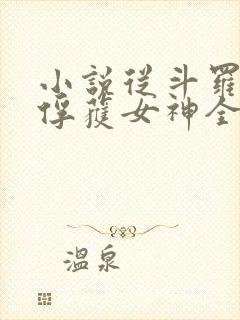 小說從斗羅
俘獲女神全
溫泉